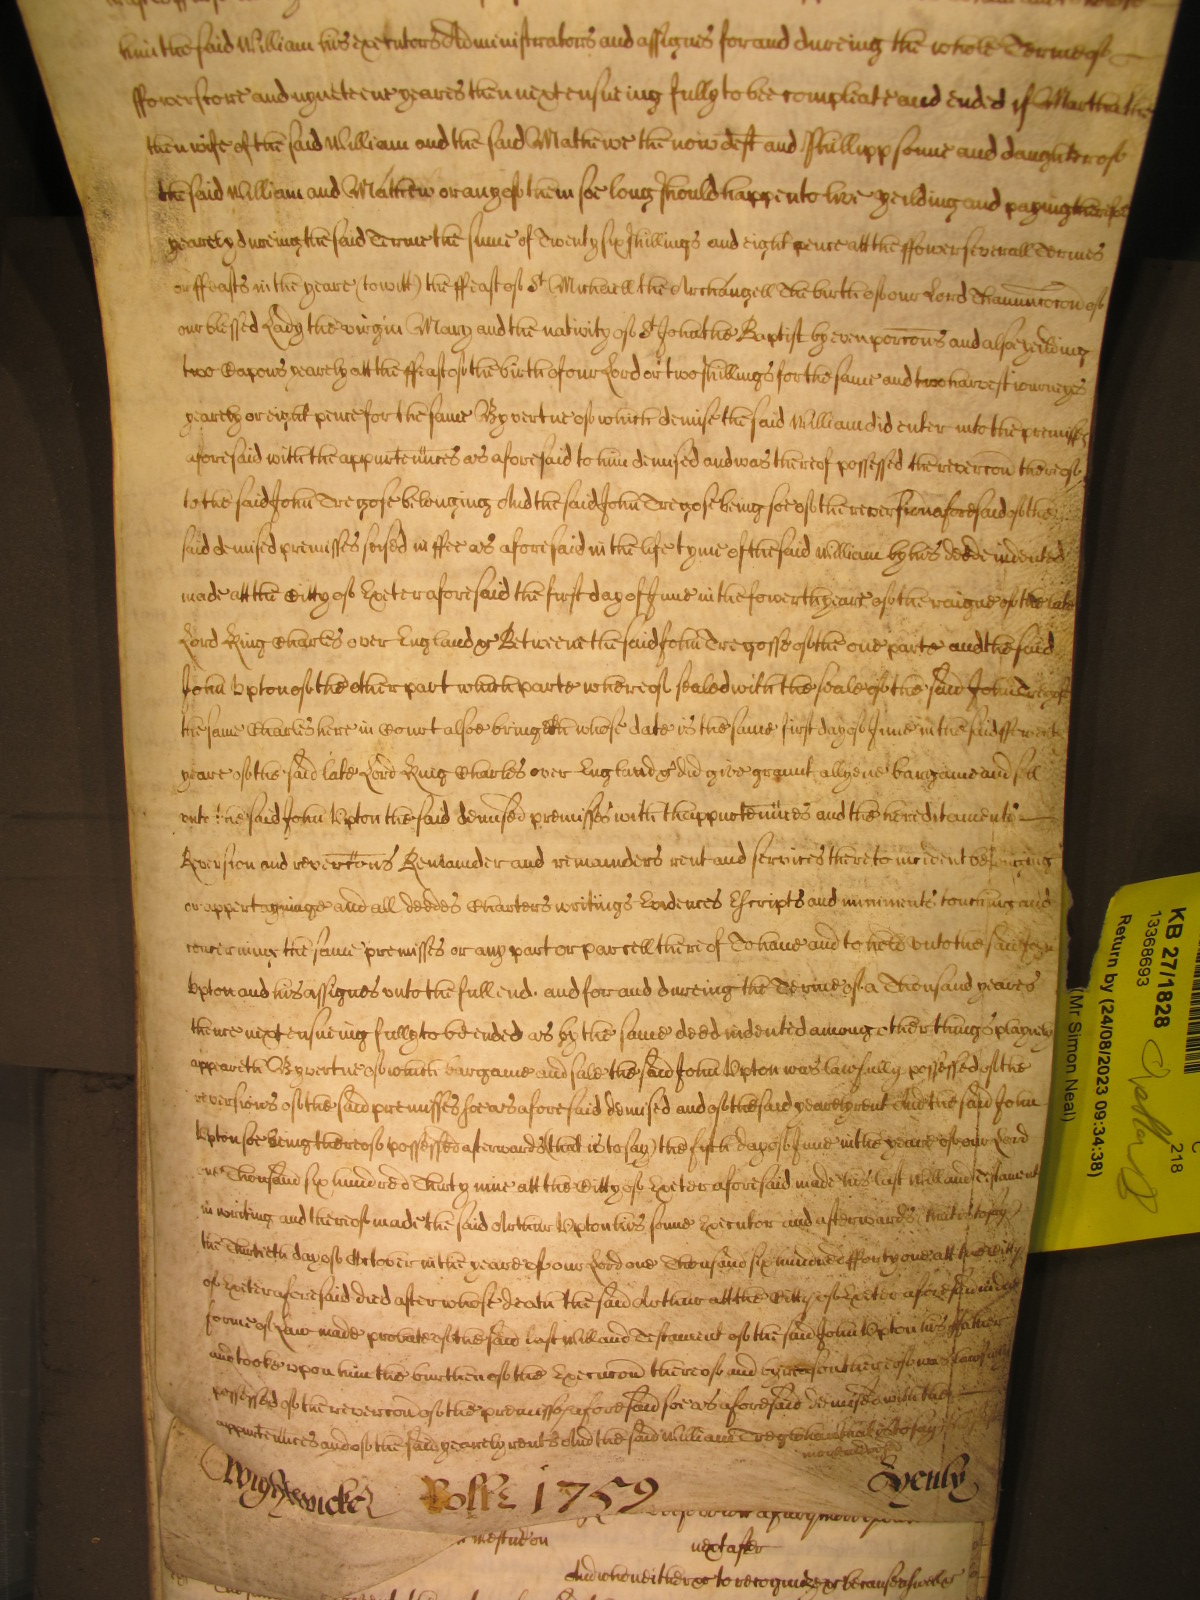 him the said William his executors Administrators and assignes for and dureing the whole Terme of
ffowerscore and nyneteene yeares then next ensueing fully to bee compleate and ended if Martha the
then wife of the said William and the said Mathewe the now deft and Phillipp sonne and daughter of
the said William and Mathew or any of them soe long should happen to live yeilding and paying therefore
yearely dureing the said Terme the sume of Twenty six shillings and eight pence att the ffower severall Termes
or ffeasts in the yeare (to witt) the ffeast of St Michaell the Archangell The birth of our Lord Thannunciacon of
our blessed Lady the virgin Mary and the nativity of St John the Baptist by even porcons and alsoe yeilding
two Capons yearely att the ffeast of the birth of our Lord or two shillings for the same and two harvest iourneyes
yearely or eight pence for the same By vertue of which demise the said William did enter into the premisses
aforesaid with the appurtennces as aforesaid to him demised and was thereof possessed the revercon thereof
to the said John Tregose belonging And the said John Tregose being soe of the reversion aforesaid of the
said demised premisses seised in ffee as aforesaid in the life tyme of the said William by his deede indented
made att the Citty of Exeter aforesaid the first day of June in the fowerth yeare of the raigne of the late
Lord King Charles over England &c Betweene the said John Tregosse of the one parte and the said
John Upton of the other part which parte whereof sealed with the seale of the said John Tregosse
the same Charles here in Court alsoe bringeth whose date is the same first day of June in the said ffowerth
yeare of the said late Lord King Charles over England &c did give graunt allyene bargaine and sell
unto the said John Upton the said demised premisses with thappurtennces and the hereditaments
Reversion and revercons Remainder and remainders rent and services thereto incident belonging
or appertayninge and all deedes Charters writings Evidences Escripts and miniments touching and
concerninge the same premisses or any part or parcell thereof To have and to hold unto the said John
Upton and his assignes unto the full end and for and dureing the Terme of a Thousand yeares
thence next ensueing fully to be ended as by the same deed indented among other things playnely
appeareth By vertue of which bargaine and sale the said John Upton was lawfully possessed of the
reversions of the said premisses soe as aforesaid demised and of the said yearely rent And the said John
Upton soe being thereof possessed afterwards (that is to say) the day of June in the yeare of our Lord
one Thousand six hundred Thirty nine att the Citty of Exeter aforesaid made his last Will and Testament
in writing and thereof made the said Arthur Upton his sonne Executor and afterwards (that is to say)
the Thirtieth day of October in the yeare of our Lord one Thousand six hundred fforty one att the Citty
of Exeter aforesaid died after whose death the said Arthur att the Citty of Exeter aforesaid in due
forme of Law made probate of the said last Will and Testament of the said John Upton his ffather
and tooke upon him the burthen of the Execucon thereof and by reason thereof was lawfully
possessed of the revercon of the premisses aforesaid soe as aforesaid demised with the
appurtennces and of the said yearely rents And the said William Tregose
Wightwicke Rolle 1759 Henly
next after
And whoneither to recognize because